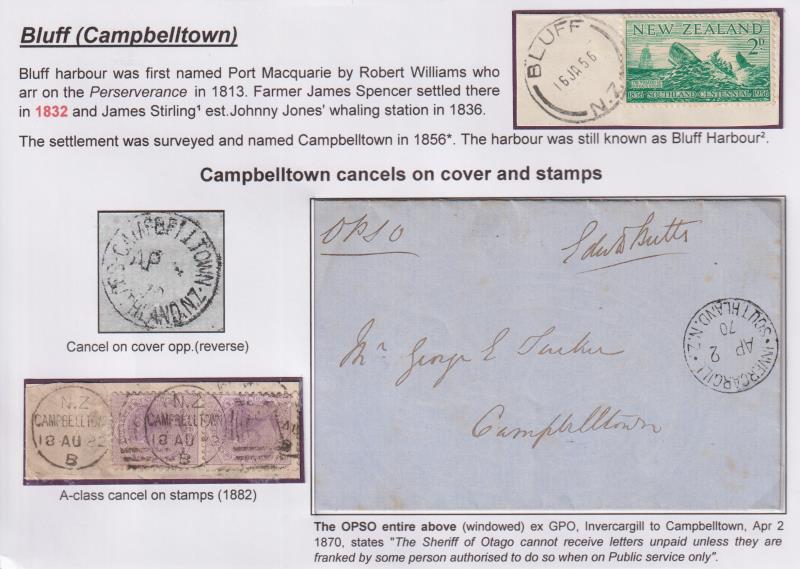 Bluff (Campbelltown)
Bluff harbour was first named Port Macquarie by Robert Williams who
arr on the Perserverance in 1813. Farmer James Spencer settled there
in 1832 and James Stirling¹ est.Johnny Jones' whaling station in 1836.
The settlement was surveyed and named Campbelltown in 1856*. The harbour was still known as Bluff Harbour².
BLUFF
16 JA 56
N.Z.
NEW ZEALAND
2D
1856 SOUTHLAND CENTENNIAL 1956
Campbelltown cancels on cover and stamps
CAMPBELLTOWN
AP
Cancel on cover opp.(reverse)
N.Z
CAMPBELLTOWN
18 AU 82
B
N.Z
CAMPBELLTOWN
18 AU 82
B
A-class cancel on stamps (1882)
OPSO
Mr George E
Campbelltown
INVERCARGILL
AP 2
70
SOUTHLAND. N.Z.
The OPSO entire above (windowed) ex GPO, Invercargill to Campbelltown, Apr 2
1870, states "The Sheriff of Otago cannot receive letters unpaid unless they are
franked by some person authorised to do so when on Public service only".